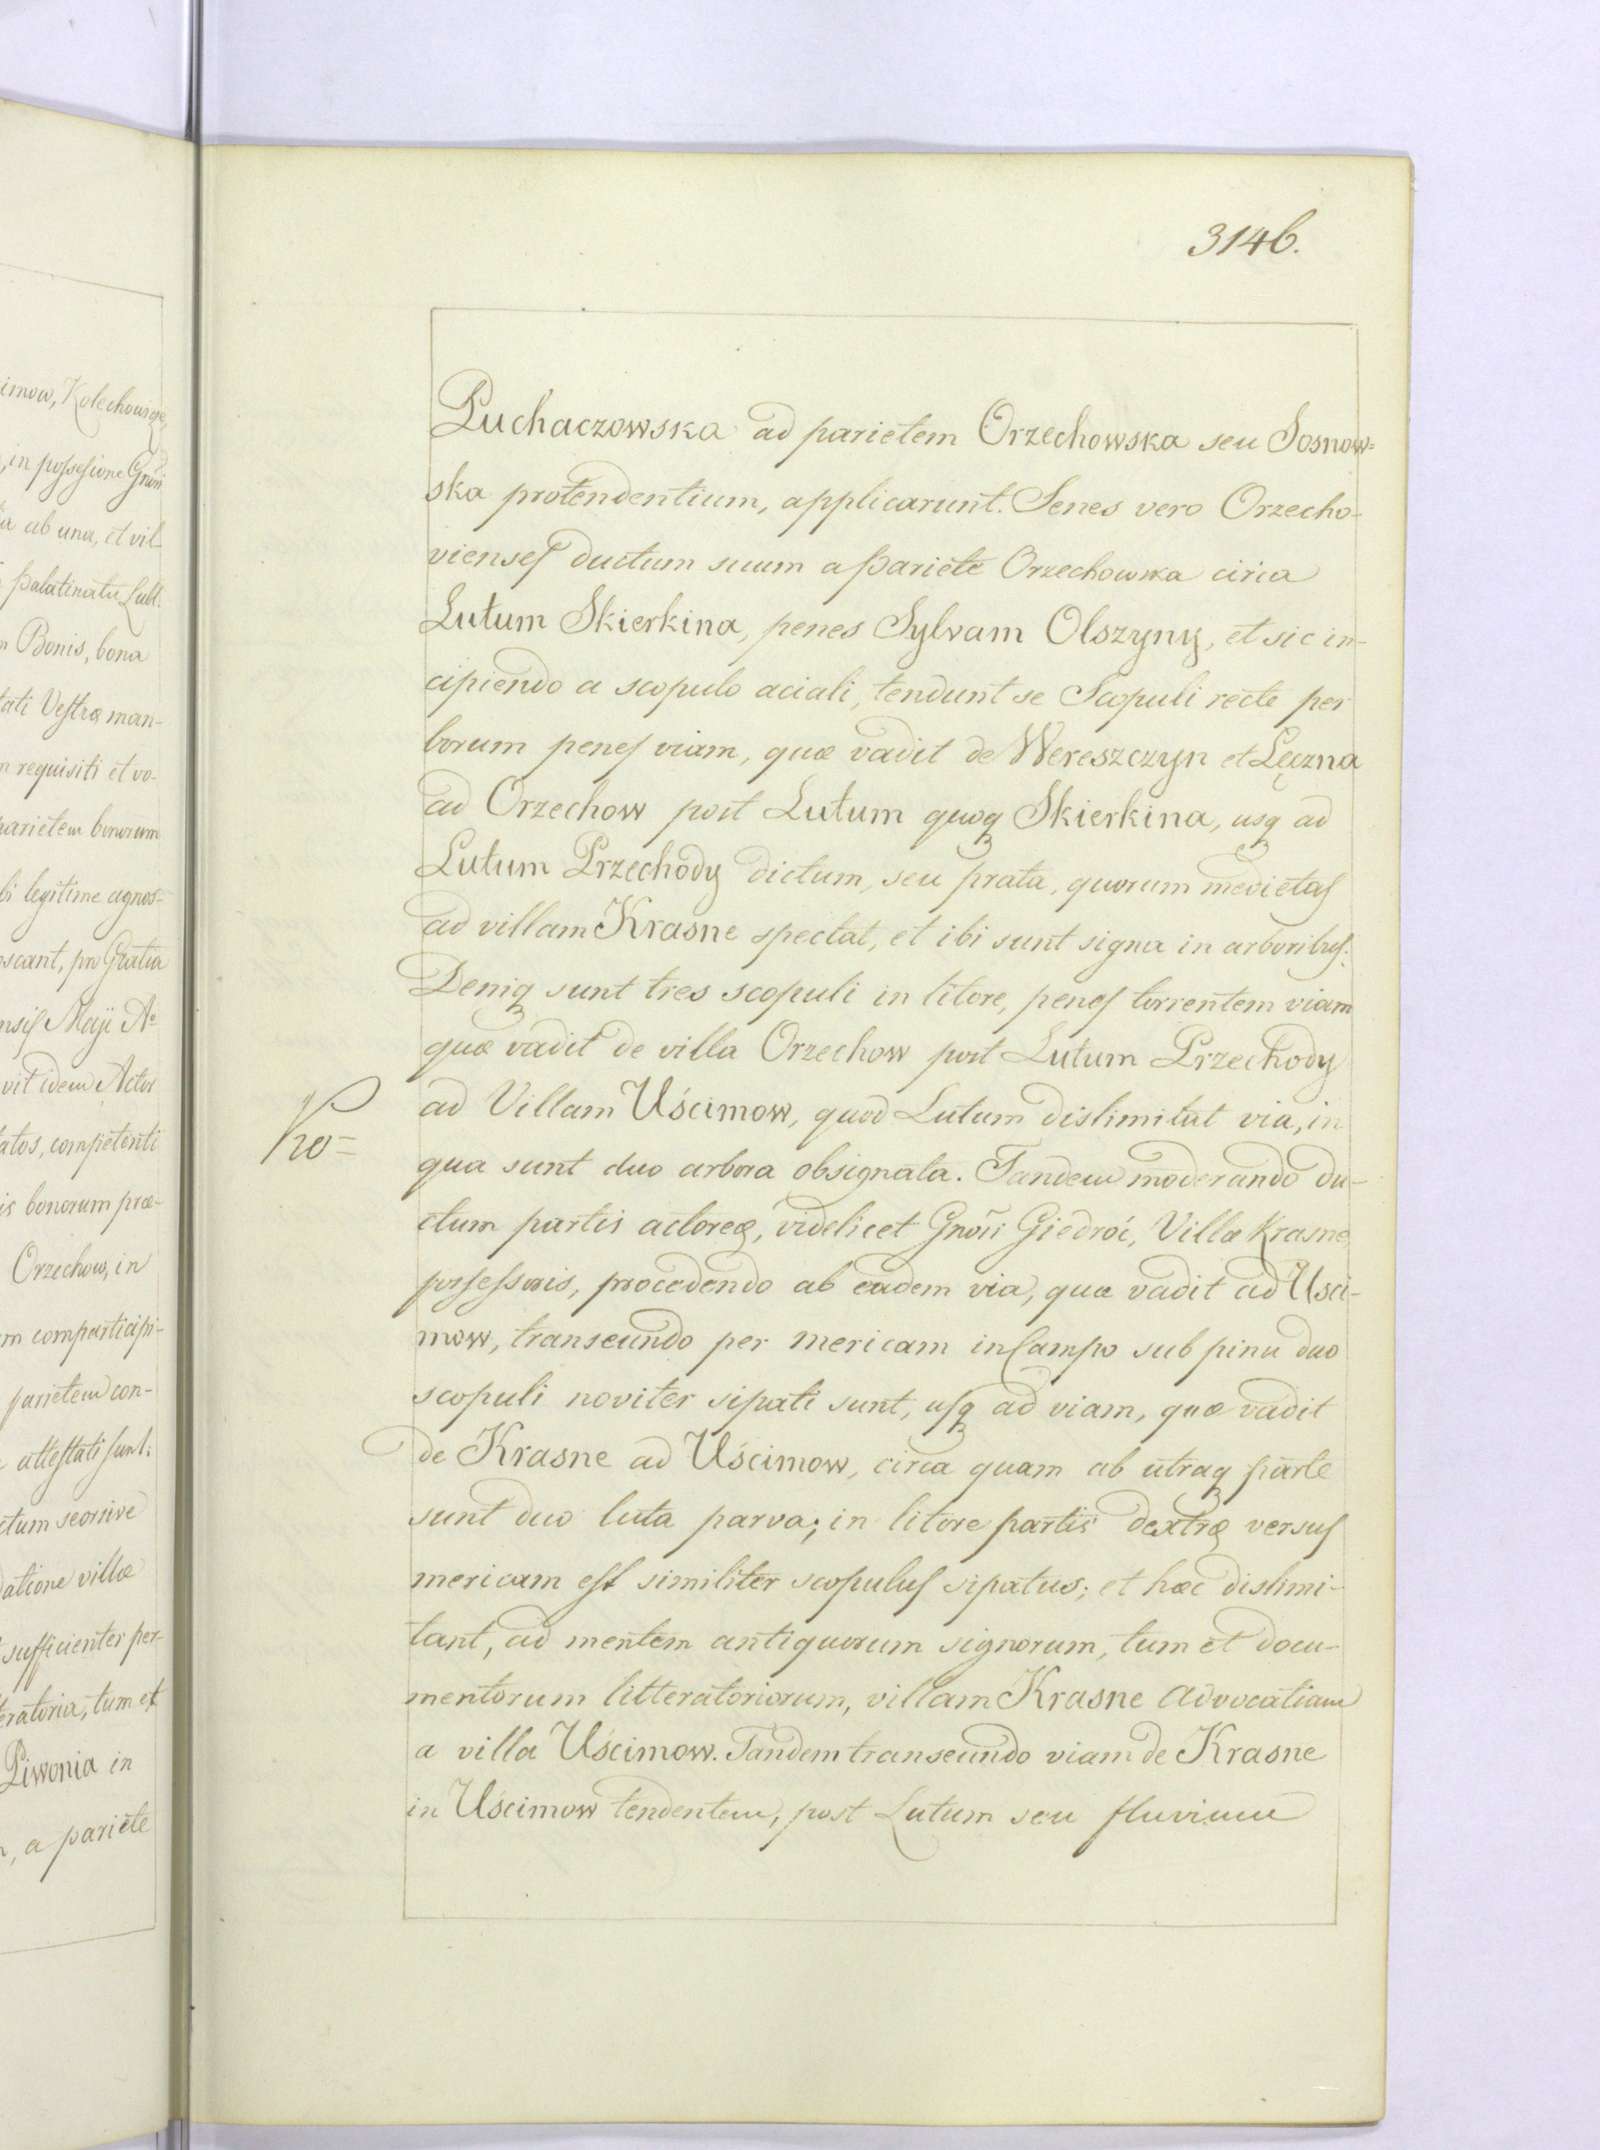 imow, Kolechowicze,
, in possessione Gnosi
ia ab una, et vil-
Palatinatu Lubl.
n Bonis, bona
tati Vestræ man-
n requisiti et vo-
parietem bonorum
bi legitime agnos-
oscant, pro Gratia
nsis Maji Aº
vit idem Actor
latos, competenti
is bonorum præ-
Orzechow, in
m comparticipi-
parietem con-
attestati sunt;
ctum seorsive
datione villæ
sufficienter per-
teratoria, tum et
Piwonia in
, a pariete
3146.
Puchaczowska ad parietem Orzechowska seu Sosnow=
ska protendentium, applicarunt. Senes vero Orzecho-
vienses ductum suum a pariete Orzechowska circa
Lutum Skierkina, penes Sylvam Olszyny, et sic in-
cipiendo a scopulo aciali, tendunt se Scopuli recte per
borum penes viam, quæ vadit de Wereszczyn et Lęczna
ad Orzechow post Lutum quoq Skierkina, usq ad
Lutum Przechody dictum, seu prata, quorum medietas
ad villam Krasne spectat, et ibi sunt signa in arboribus.
Deniq sunt tres scopuli in litore, penes torrentem viam
quæ vadit de villa Orzechow post Lutum Przechody
ad Villam Uścimow, quod Lutum dislimitat via, in
qua sunt duo arbora obsignata. Tandem moderando du-
ctum partis actoreæ, videlicet Gnosi Giedroić, Villæ Krasne
possessoris, procedendo ab eadem via, quæ vadit ad Usci-
mow, transeundo per mericam in Campo sub pinu duo
scopuli noviter sipati sunt, usq ad viam, quæ vadit
de Krasne ad Uścimow, circa quam ab utraq parte
sunt duo luta parva; in litore partis dextræ versus
mericam est similiter scopulus sipatus; et hæc dislimi-
tant, ad mentem antiquorum signorum, tum et docu-
mentorum litteratoriorum, villam Krasne Advocatiam
a villa Uścimow. Tandem transeundo viam de Krasne
in Uścimow tendentem, post Lutum seu fluvium